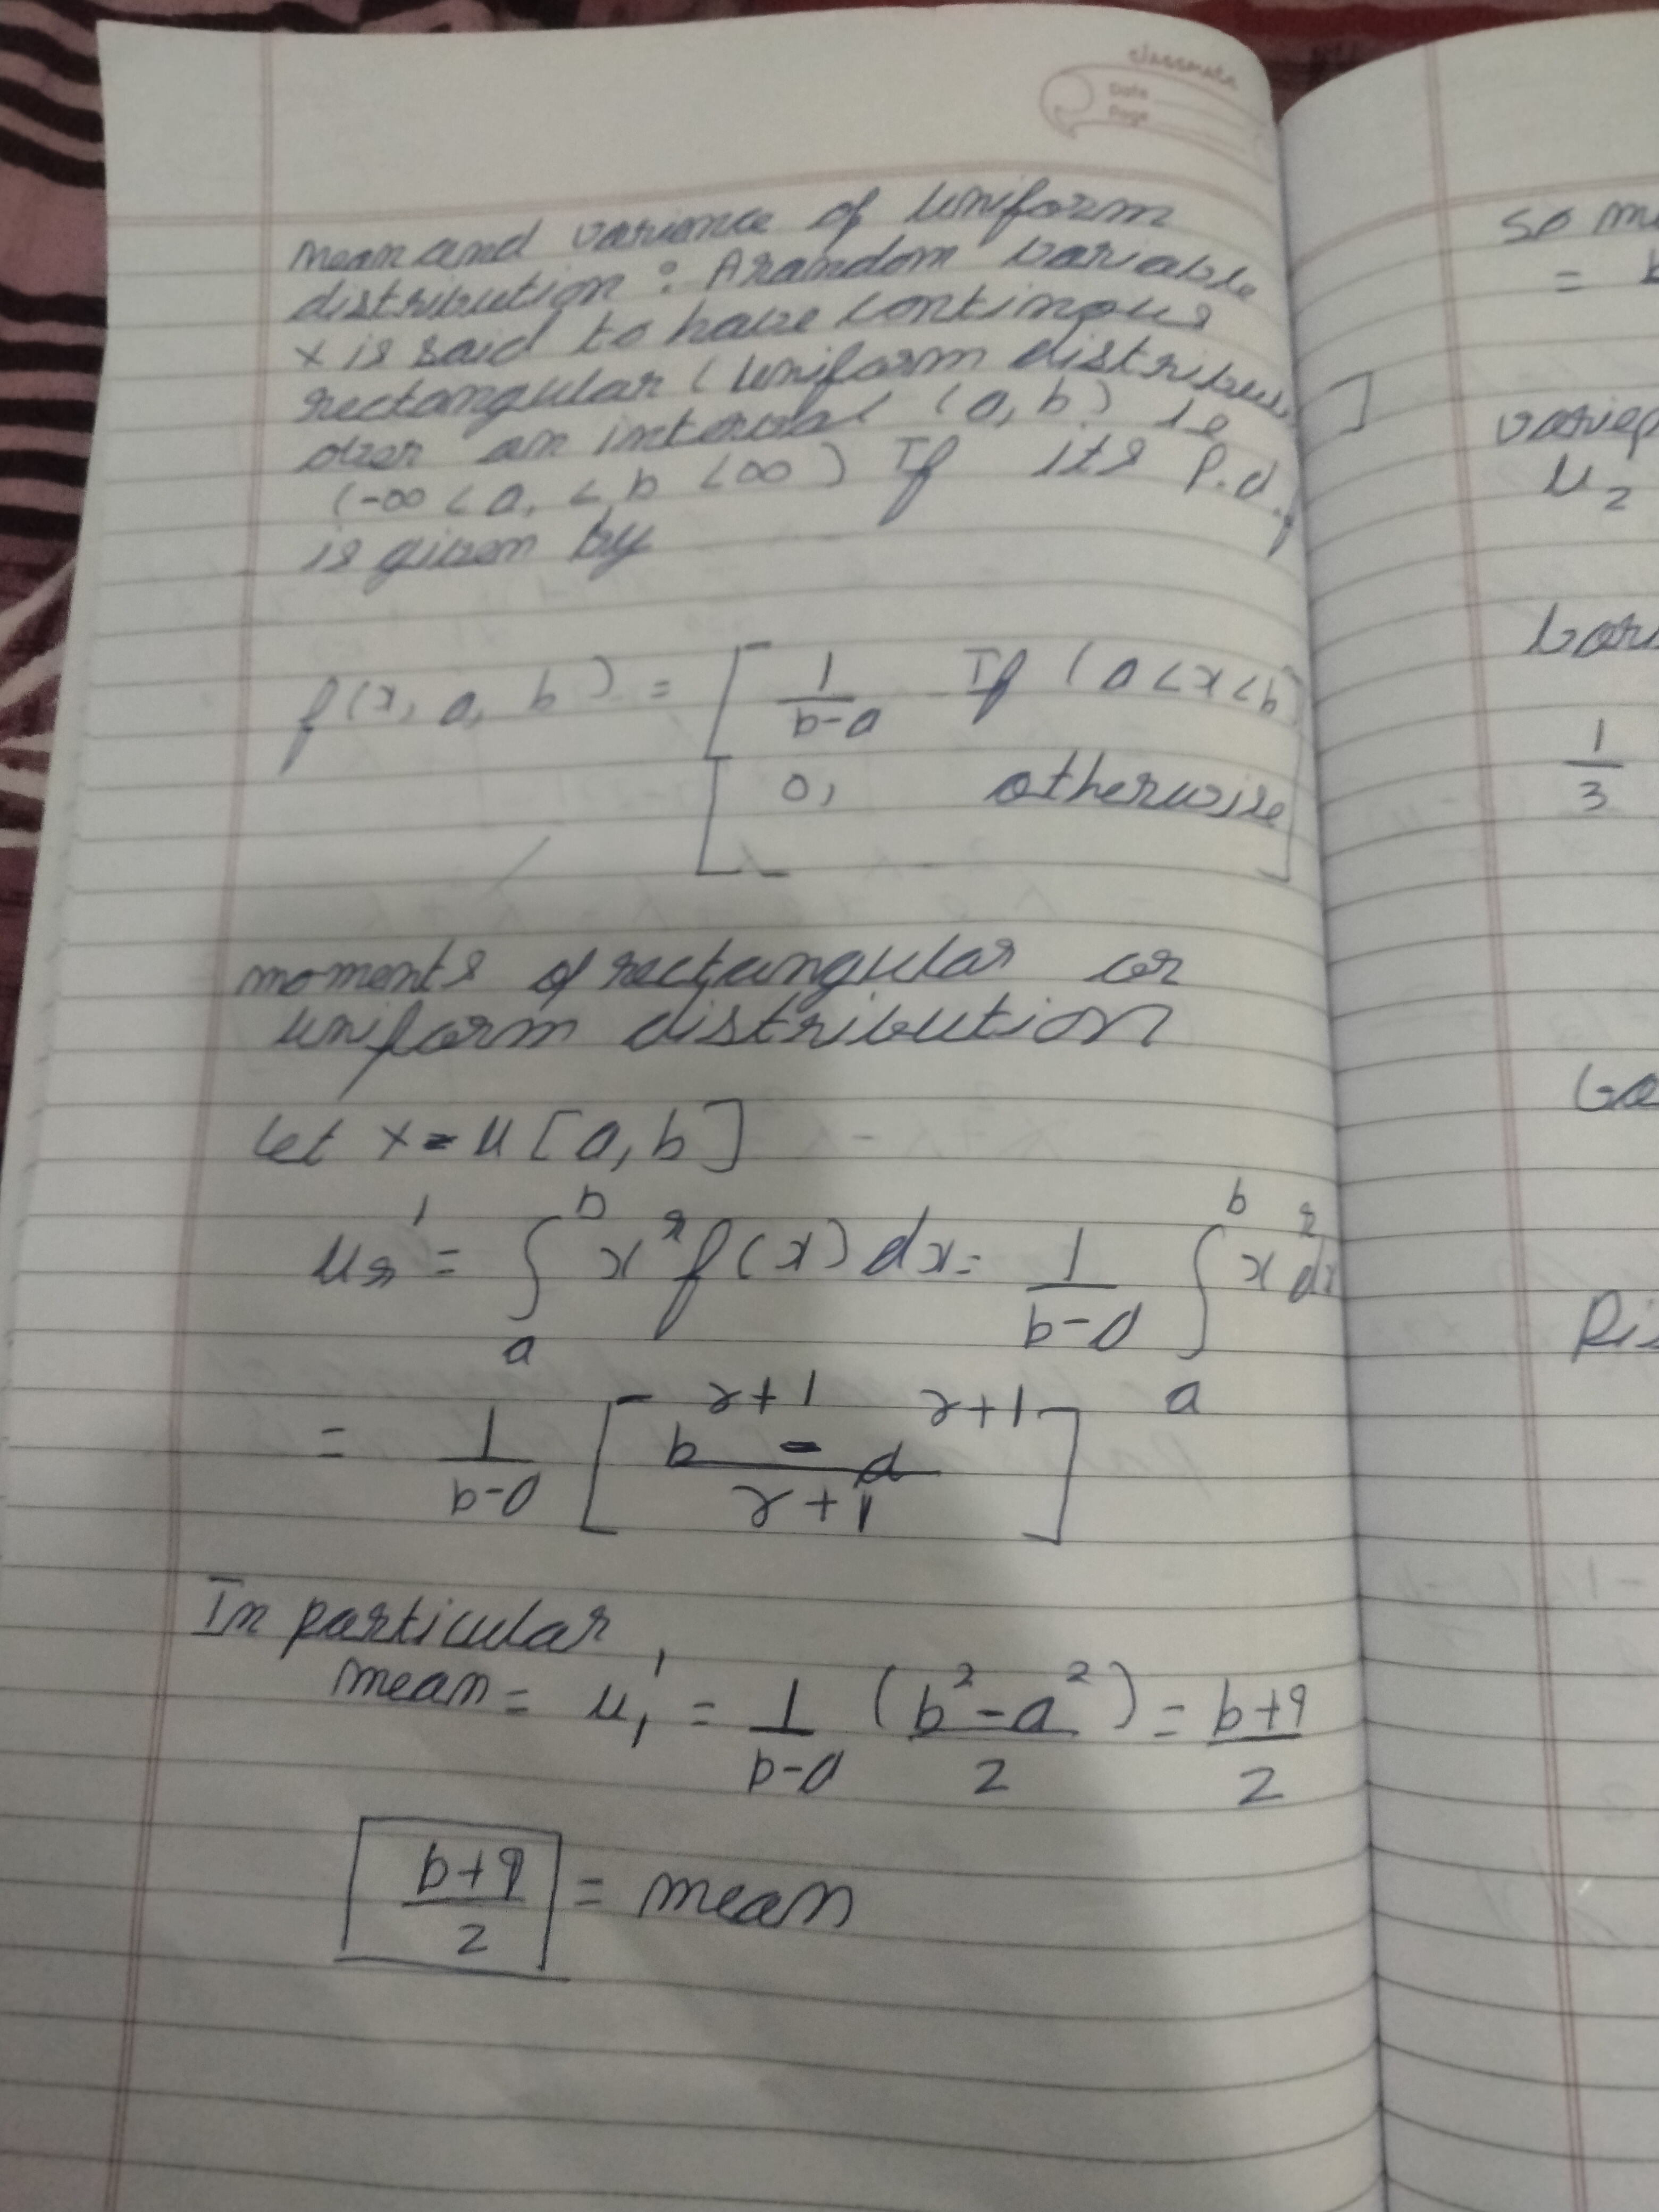 classmate
Date
Page
mean and variance of uniform
distribution : A random variable
x is said to have continous
rectangular ( uniform distribu
over an interval (a, b) ie
(-∞ < a, < b < ∞) If its P.d.f
is given by
f(x, a, b) = [ 1/(b-a) If (a<x<b)
[ 0, otherwise ]
moments of rectangular or
uniform distribution
Let x = u [a, b]
μr' = ∫_a^b x^r f(x) dx = 1/(b-a) ∫_a^b x^r dx
= 1/(b-a) [ (b^(r+1) - a^(r+1))/(r+1) ]
In particular,
mean = μ1' = 1/(b-a) (b²-a²)/2 = (b+a)/2
(b+a)/2 = mean
so m
=
μ2
1/3